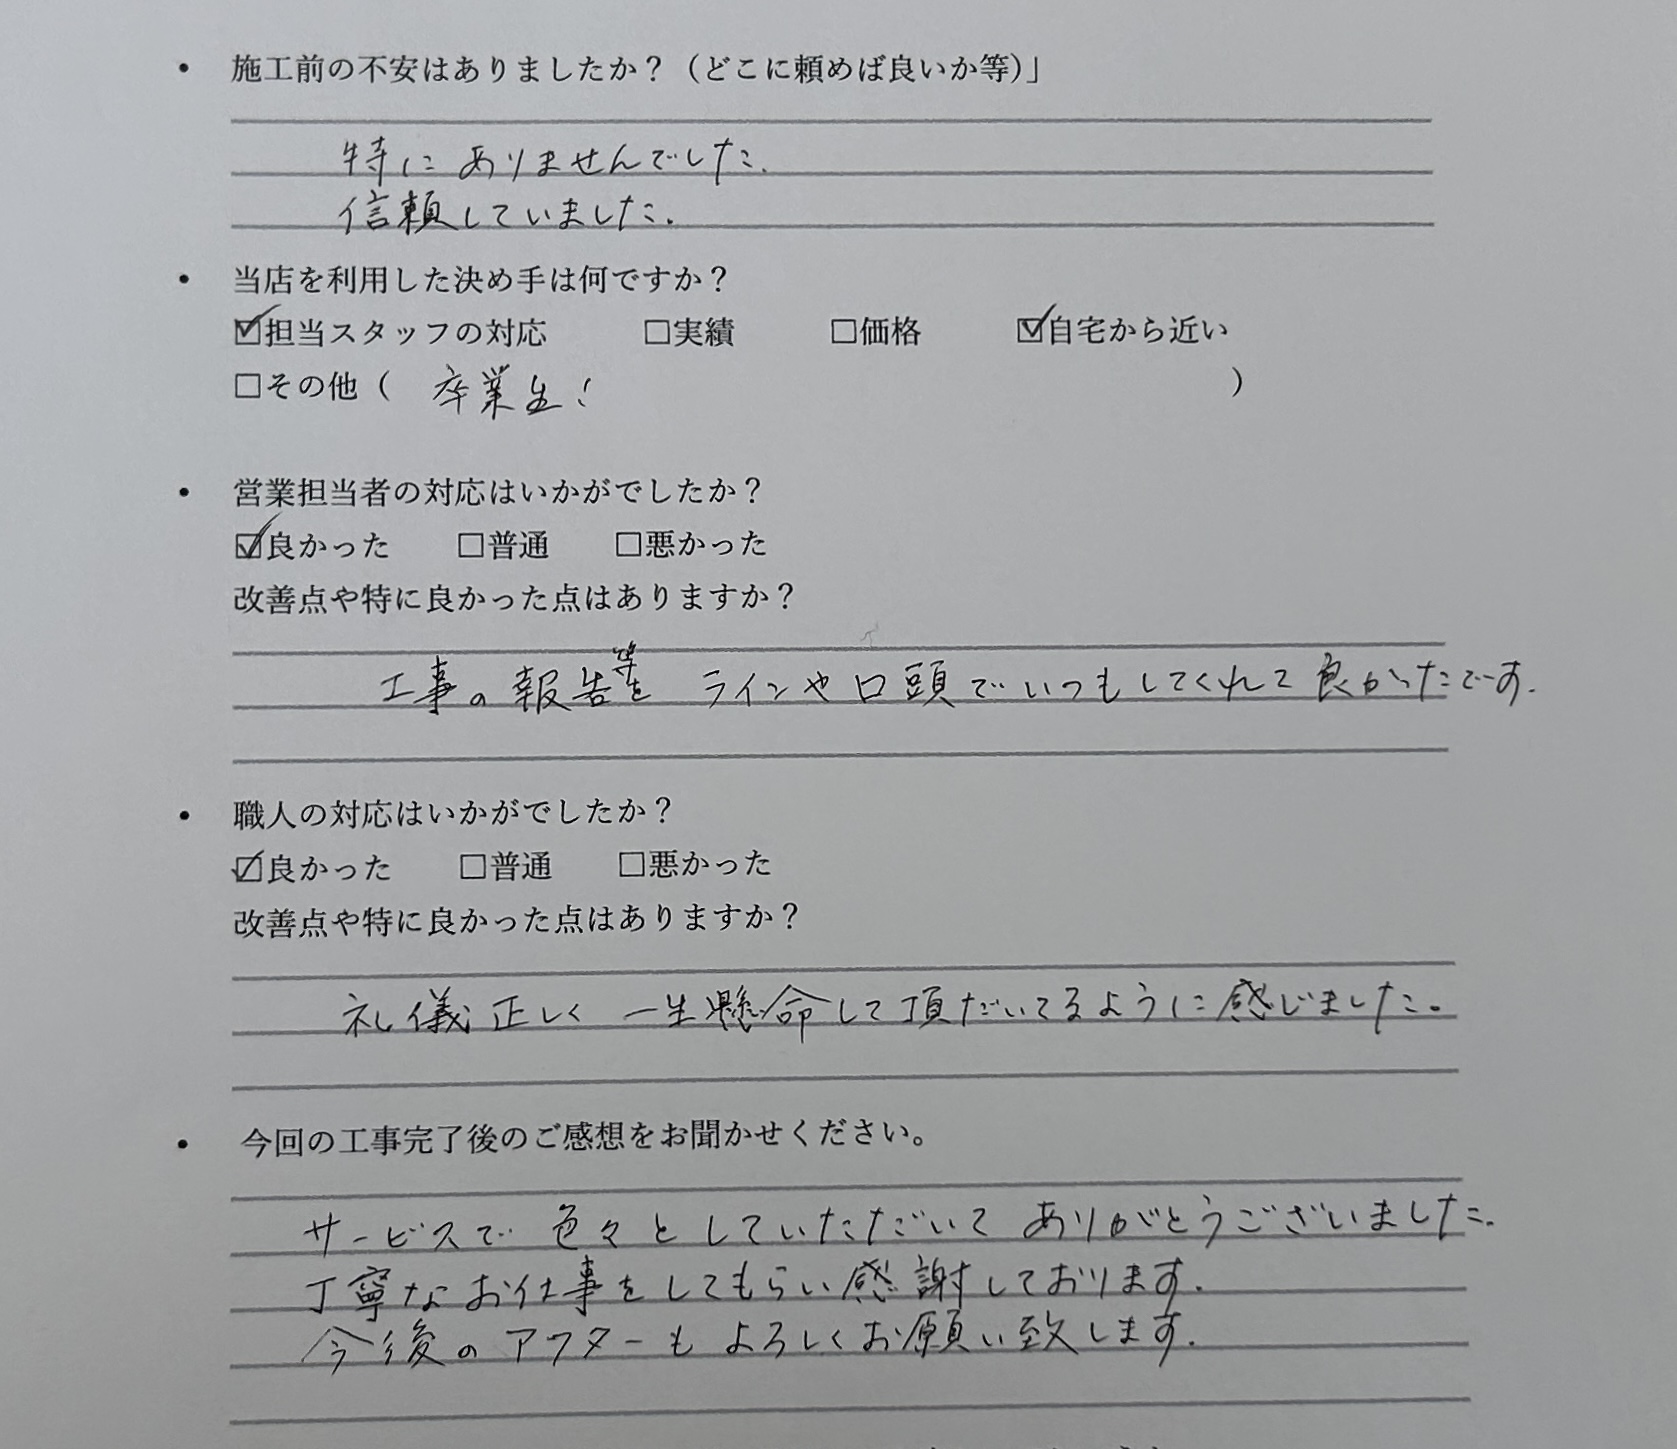 ・ 施工前の不安はありましたか？（どこに頼めば良いか等）」
特にありませんでした.
信頼していました.
・ 当店を利用した決め手は何ですか？
☑担当スタッフの対応 □実績 □価格 ☑自宅から近い
□その他（ 卒業生！ ）
・ 営業担当者の対応はいかがでしたか？
☑良かった □普通 □悪かった
改善点や特に良かった点はありますか？
工事の報告等を ラインや口頭でいつもしてくれて良かったです.
・ 職人の対応はいかがでしたか？
☑良かった □普通 □悪かった
改善点や特に良かった点はありますか？
礼儀正しく 一生懸命して頂だいてるように感じました。
・ 今回の工事完了後のご感想をお聞かせください。
サービスで 色々としていただいて ありがとうございました.
丁寧なお仕事をしてもらい感謝しております.
今後のアフターもよろしくお願い致します.